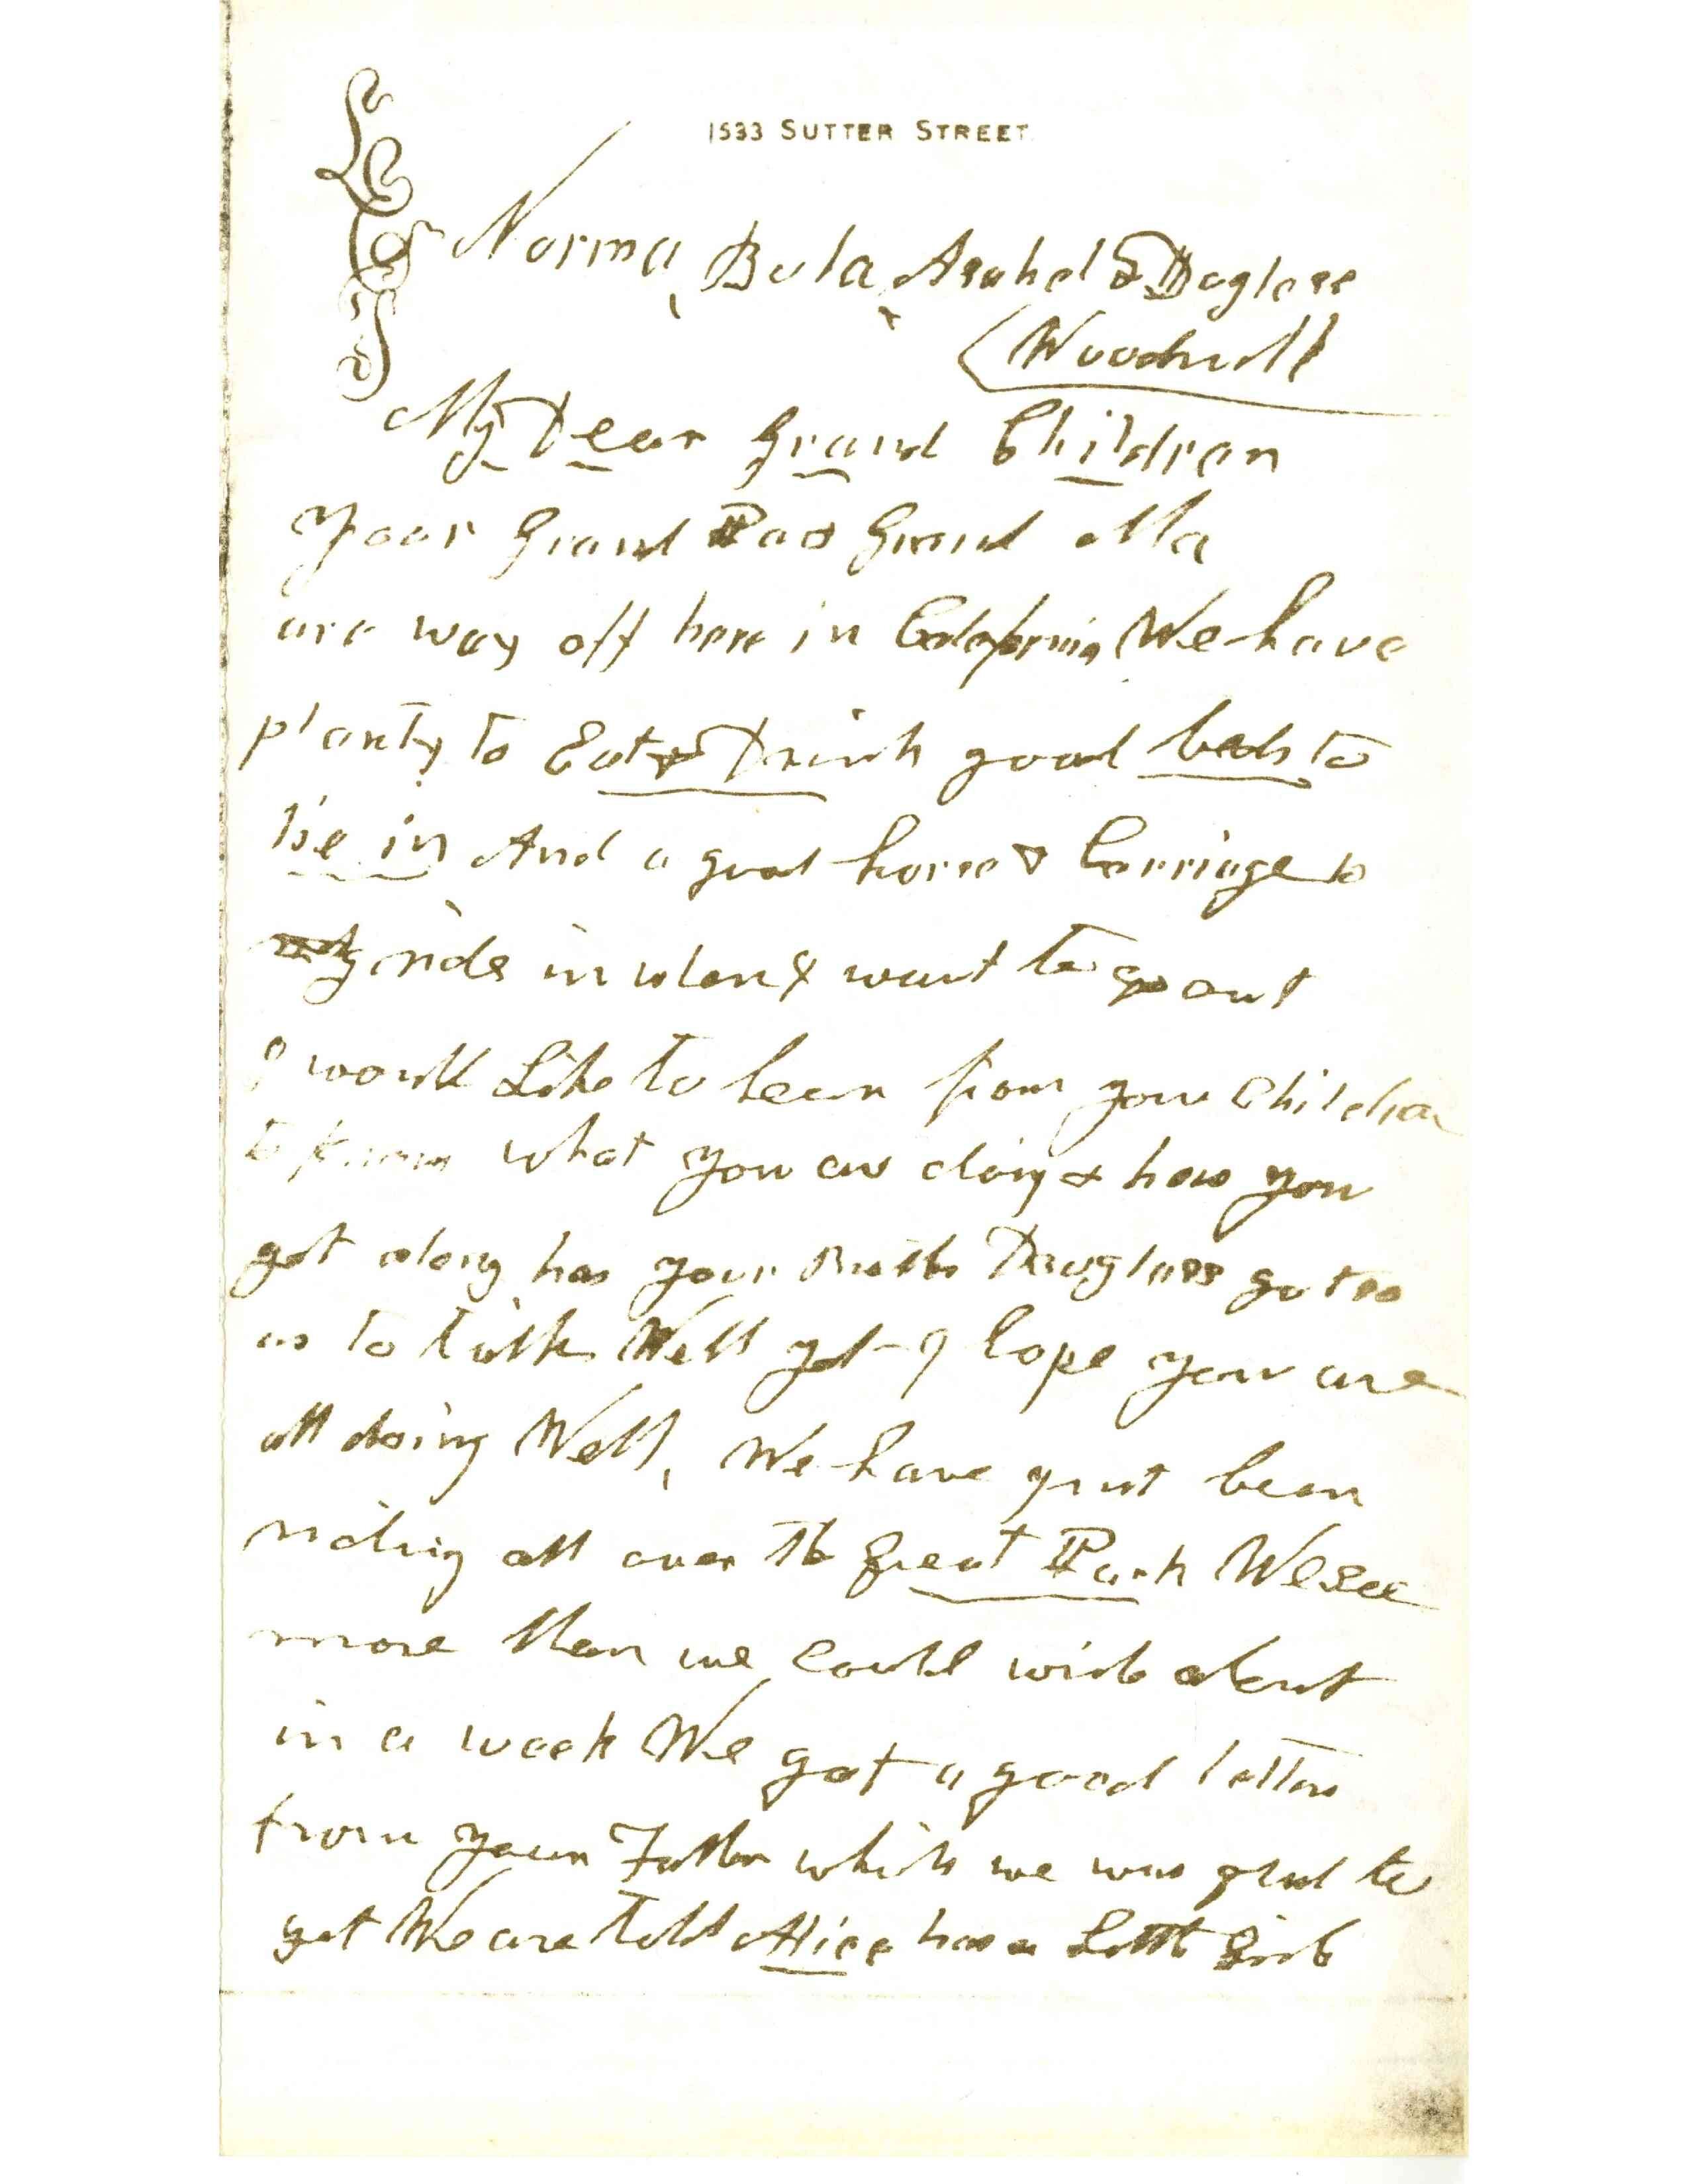 1533 SUTTER STREET
Norma, Bula, Asahel & Duglass
(Woodhull
My Dear Grand Children
Your Grand Pa & Grand Ma
are way off here in California We have
planty to Eat & Drink good beds to
lie in And a good horse & Carriage to
ride in when I want to go out
I would Like to hear from you Children
to know what you are doing & how you
get along has your Brother Duglass got so
as to talk Well yet I hope you are
all doing Well, We have just been
riding all over the great Park We see
more than we could wish about
in a week We got a good letter
from your Father which we was glad to
get We are told Alice has a Little Girl